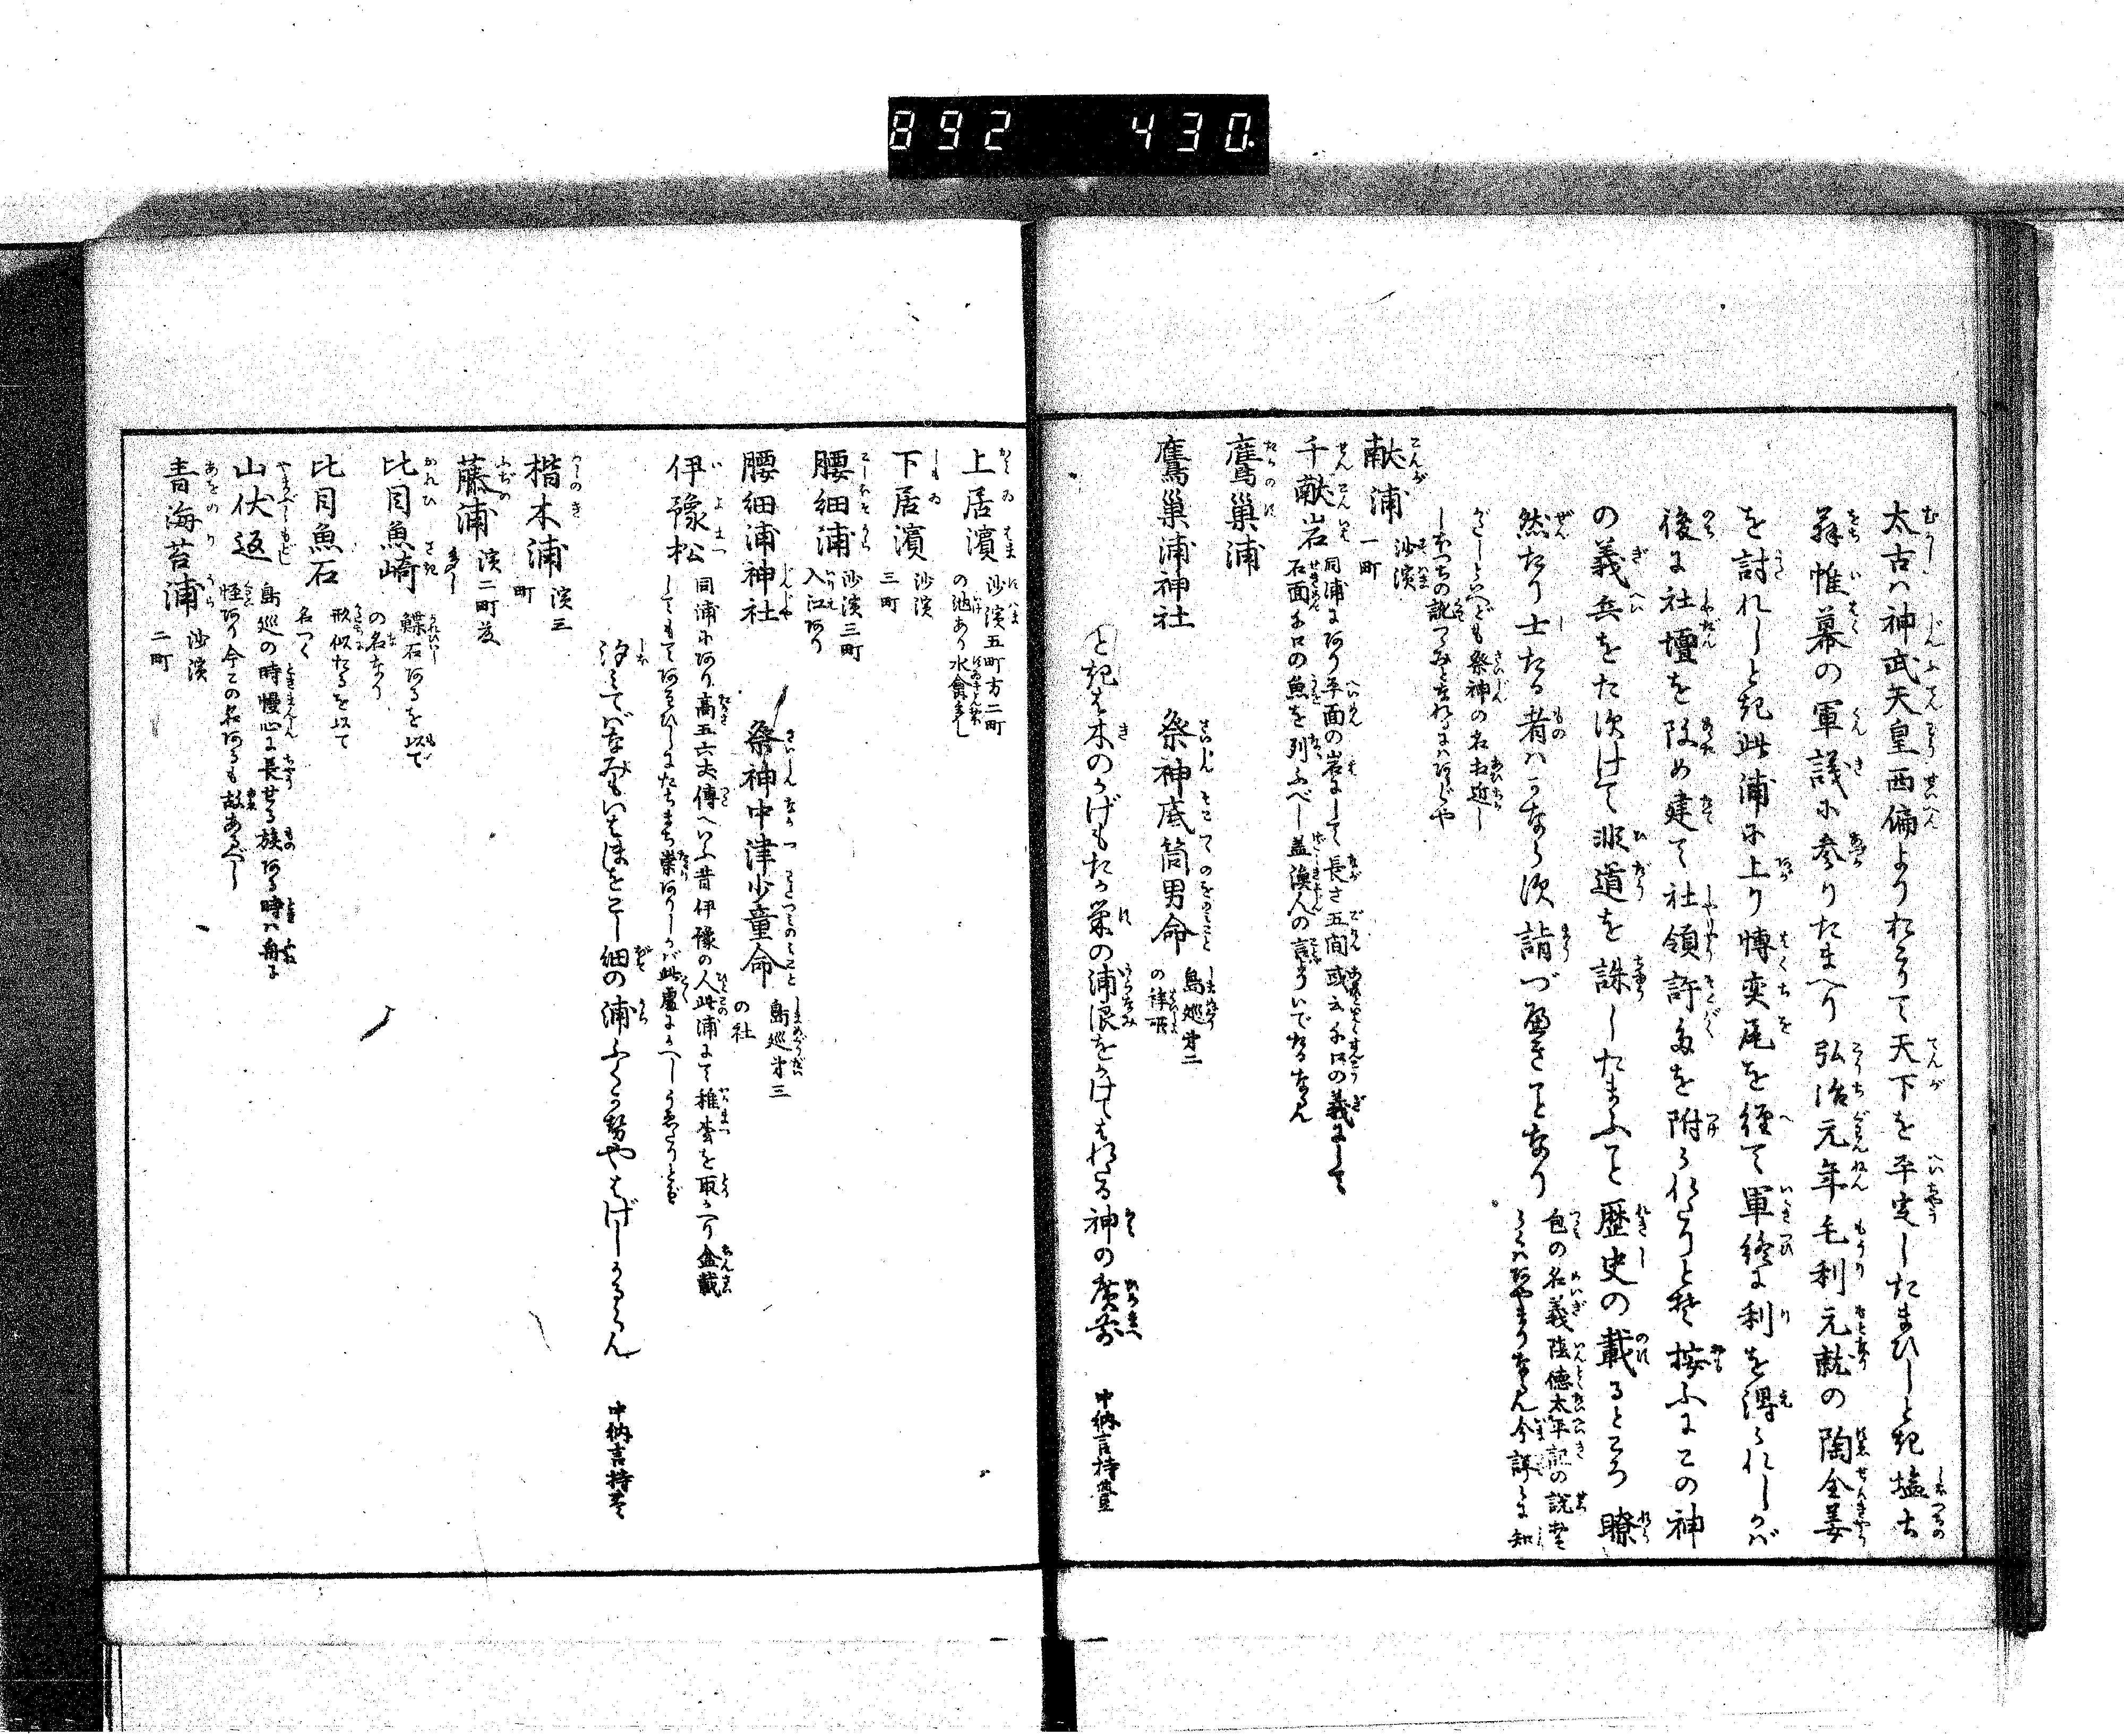 892 430.
太古ハ神武天皇西偏よりおこりて天下を平定したまひしとき塩土
翁惟幕の軍議に参りたまへり弘治元年毛利元就の陶全姜
を討れしとき此浦に上り博奕尾を経て軍終に利を得られしかバ
後に社壇を改め建て社領許多を附られたりとぞ按ふにこの神
の義兵をたすけて非道を誅したまふこと歴史の載るところ瞭
然たり士たる者ハかならず詣づべきことなり
包の名義陰徳太平記の説
ハあやまりならん今詳に知
がたしといへども祭神の名相近し
しほつちの訛
献浦 沙濱一町
千献岩 同浦にあり平面の岩にして長さ五間或云千口の義にして
石面千口の魚を列ふべし蓋漁人の言よりいでたるならん
鷹巣浦
鷹巣浦神社 祭神底筒男命 島巡第二の拝所
とき木のかげもたか巣の浦浪をかけてしれる神の廣前 中納言持豊
上居濱 沙濱五町方二町
の池あり水禽多し
下居濱 沙濱三町
腰細浦 沙濱三町
入江あり
腰細浦神社 祭神中津少童命 島巡第三の社
伊豫松 同浦にあり高五六丈傳へいふ昔伊豫の人此浦にて稚松を取かへり盆栽
してもてあそひしにたちまち祟ありしかバ此處にかへしうゑたりとぞ
汐みてバなみもいとまをこし細の浦ふくかぜやはげしかるらん 中納言持豊
楷木浦 濱三町
藤浦 濱二町荻多し
比目魚崎 鰈石あるを以て
の名なり
比目魚石 形似たるを以て
名つく
山伏返 島巡の時慢心に長せる族ある時ハ舟に
怪あり今この名あるも故あるべし
青海苔浦 沙濱二町